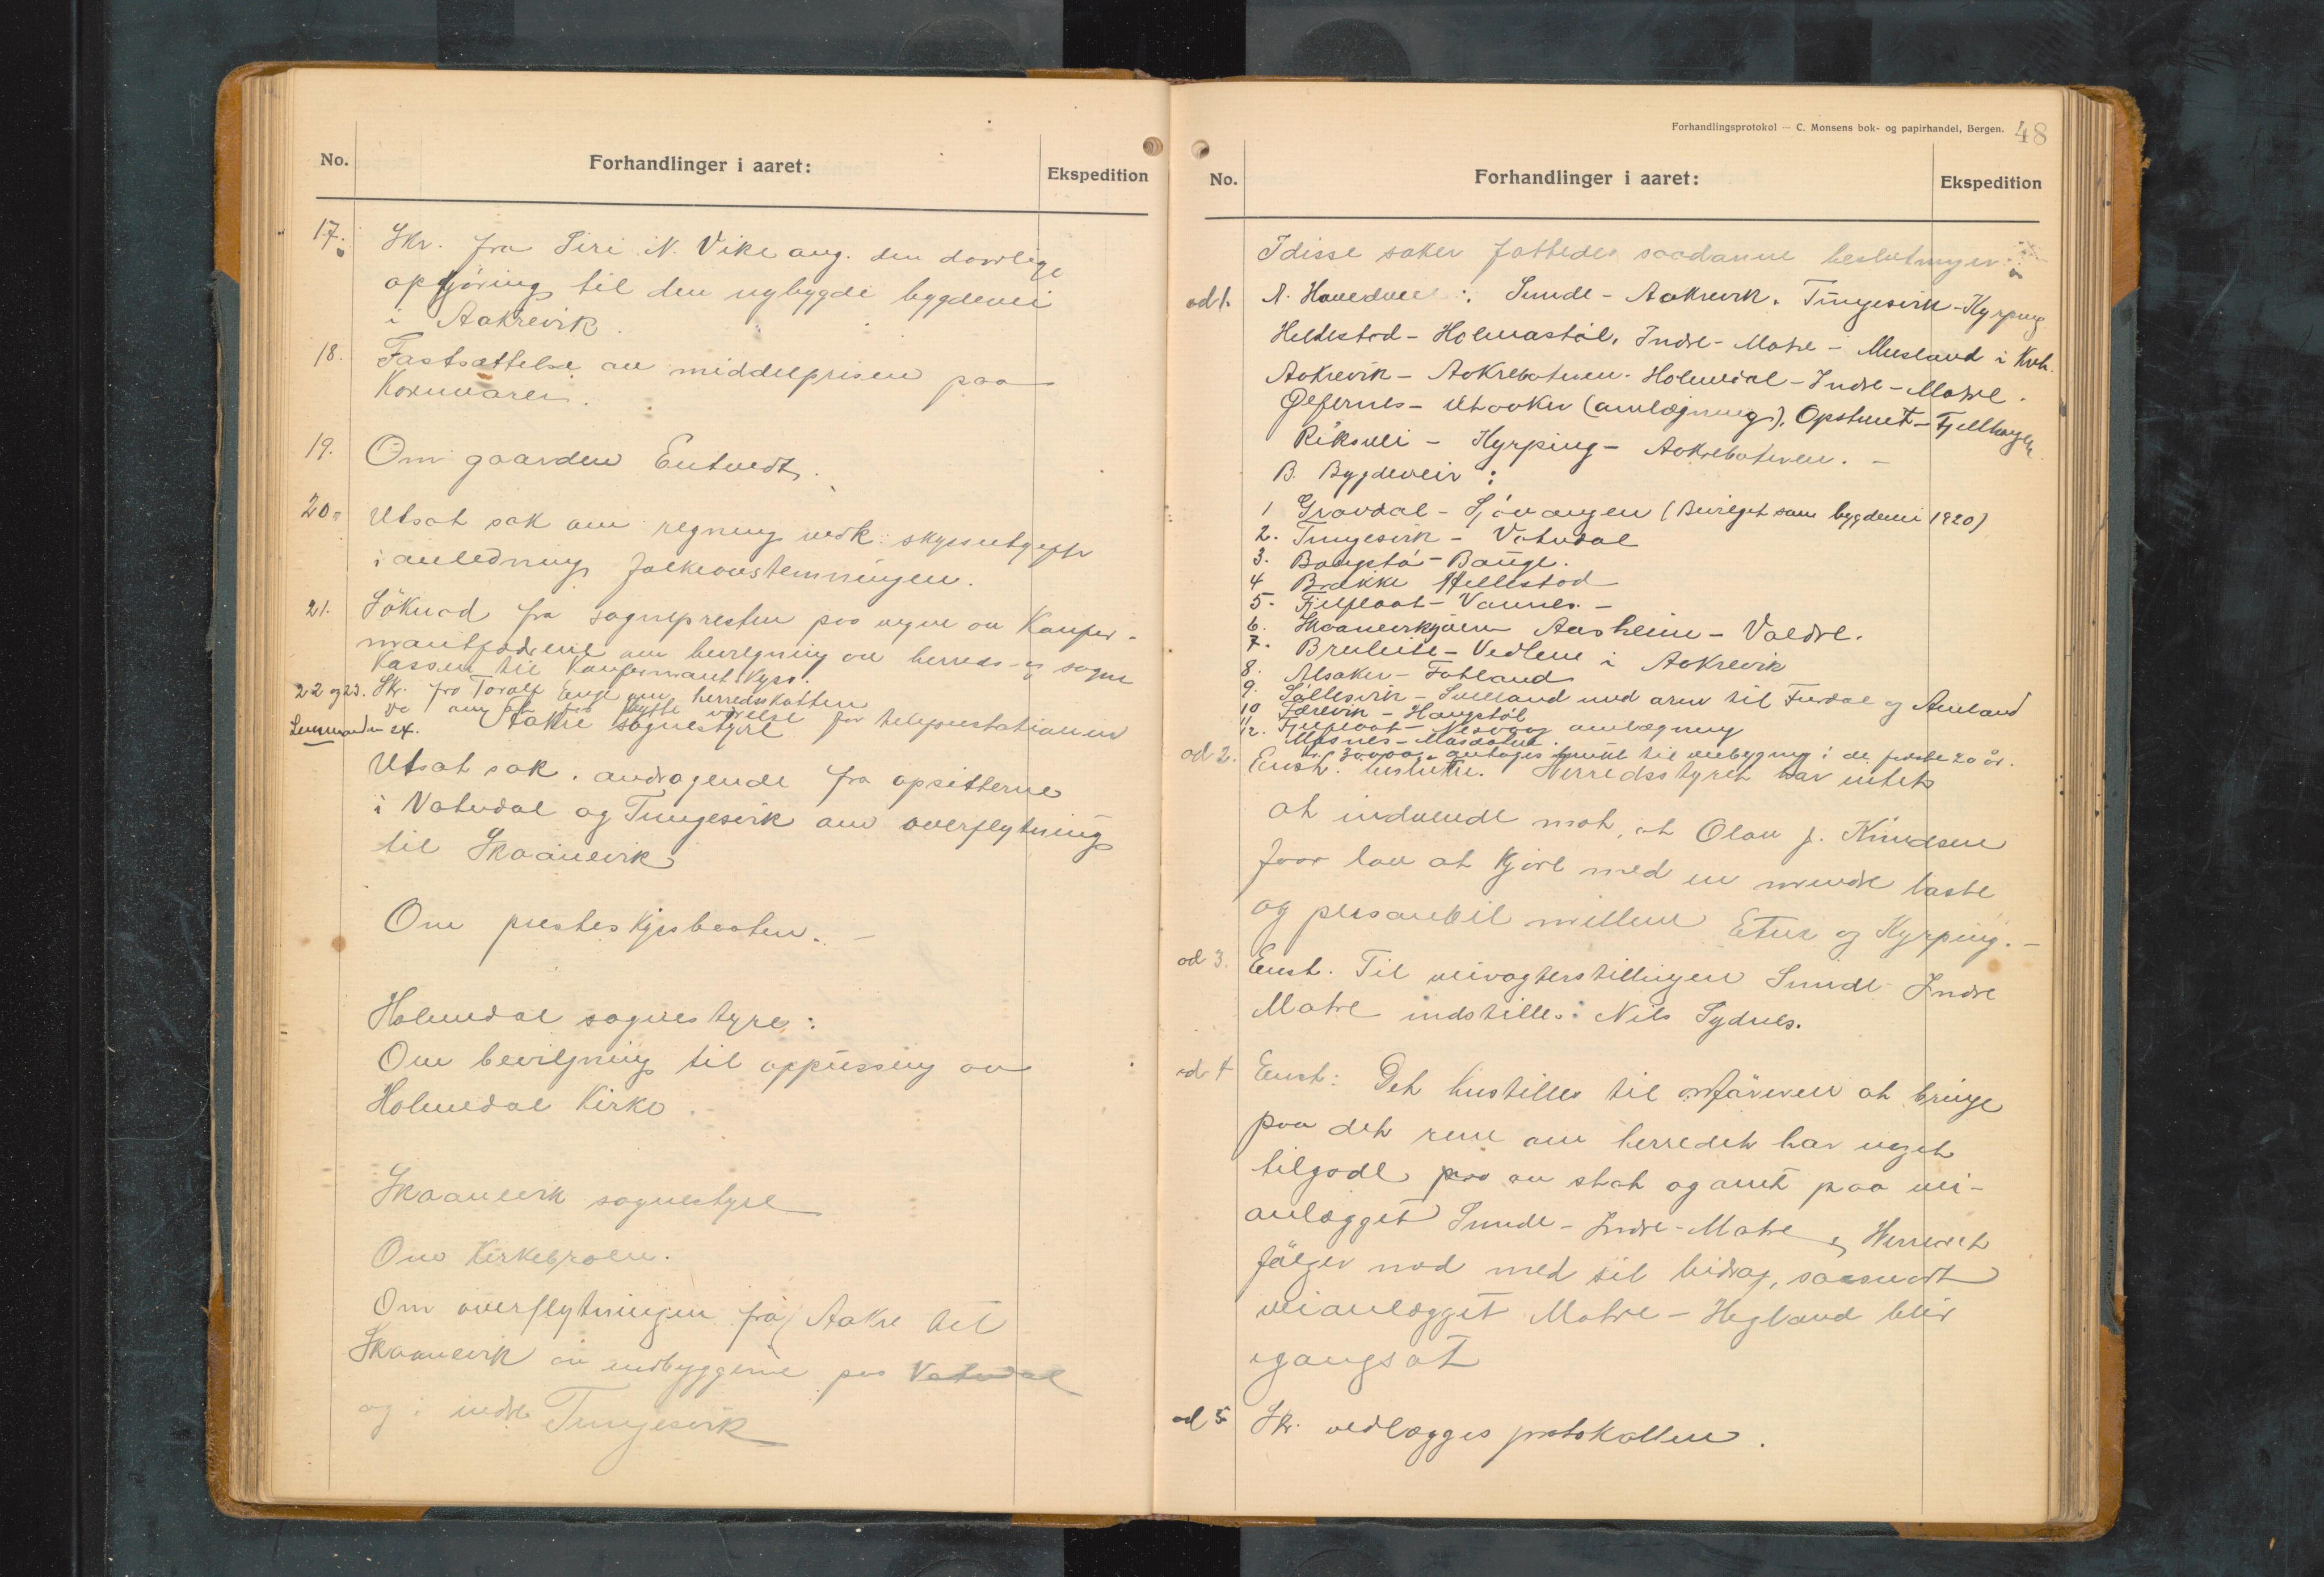 No.
Forhandlinger i aaret:
Ekspedition
17. Skr. fra Siri N. Vike ang. den daarlige
opkjøring til den nybygde bygdevei
i Aakrevik.
18. Fastsættelse av middelprisen paa
Kornvarer.
19. Om gaarden Entvedt.
20. Utsat sak om regning vedk. skyssutgifter
i anledning folkeavstemningen.
21. Søknad fra sognepresten paa vegne av Konfir-
mantfædrene om bevilgning av herreds- og sogne
kassen til Konfirmantskyss.
22 og 23. Skr. fra Toralf Enge om herredsskatten
Do ang
Lensmanden 24. Aakre sognestyre for telegrafstationen
Utsat sak. andragende fra opsitterne
i Vatndal og Tungesvik om overflytning
til Skaanevik
Om presteskyssbaaten. –
Holmedal sognestyre:
Om bevilgning til oppussing av
Holmedal Kirke.
Skaanevik sognestyre
Om Kirkebroen.
Om overflytningen fra Aakre til
Skaanevik av indbyggerne paa Vatndal
og i indre Tungesvik
Forhandlingsprotokol — C. Monsens bok- og papirhandel, Bergen. 48
No.
Forhandlinger i aaret:
Ekspedition
I disse saker fattedes saadanne beslutninger:
ad 1. A. Hovedveie: Sunde - Aakrevik. Tungesvik - Kyrping
Heltestad - Holmastøl, Indre - Matre - Musland i Kvh.
Aakrevik - Aakrebotnen. Holmedal - Indre - Matre.
Øefernes - Utaaker (omlægning), Opstveit - Fjellhaugen
Riksvei - Kyrping - Aakrebotnen. –
B. Bygdeveir:
1 Gravdal - Sjøvangen (Bevilget som bygdevei 1920)
2. Tungesvik - Vatndal
3. Baugstø - Bauge.
4 Brække Hellestad
5. Fjelflaat - Vannes. –
6. Skaaneviksjøen Aasheim - Valdre.
7. Breilie - Vedlene i Aakrevik
8. Alsaker - Fatland
9. Sållesvik - Sveeland med arm til Furdal og Amland
10 Færevik - Haugstøl
11. Fjelflaat - Nesvaag omlægning
12. Mosnes - Masdalen.
Kr. 30000,- antages brukt til veibygning i de første 20 år.
ad 2. Enst. beslutn. Herredsstyret har intet
at indvende mot, at Olav J. Knudsen
faar lov at kjøre med en mindre laste
og personbil mellem Etne og Kyrping. –
ad 3. Enst. Til veivogterstillingen Sunde Indre
Matre indstilles: Nils Sydnes.
ad 4 Enst: Det henstilles til ordføreren at bringe
paa det rene om herredet har noget
tilgode paa av stat og amt paa vei-
anlægget Sunde - Indre - Matre, Herredet
følger med med sit bidrag, saasnart
veianlægget Matre - Hegland blir
igangsat
ad 5 Skr. vedlægges protokollen.